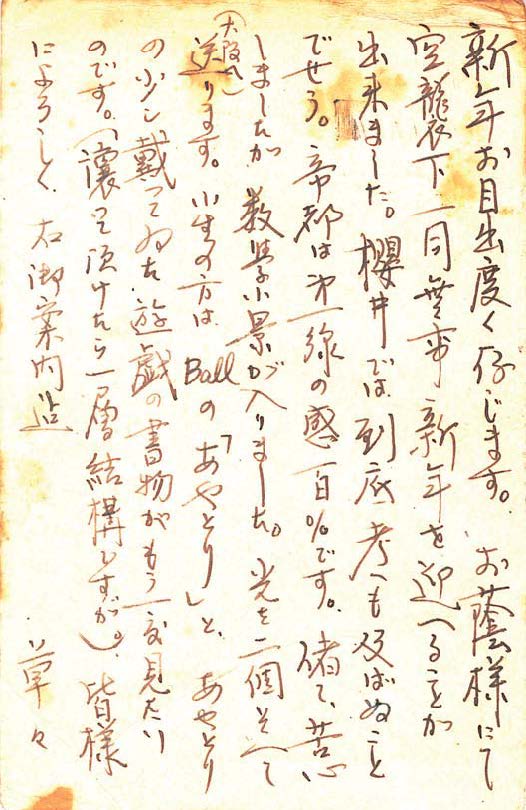 新年お目出度く存じます。お蔭様にて
空襲下一同無事新年を迎へることが
出来ました。櫻井では到底考へも及ばぬこと
でせう。帝都は第一線の感百%です。偖て、苦心
しましたが 数学小景が入りました。光を二個そへて
(大阪へ)
送ります。小生の方は Ballの「あやとり」と、あやとり
の少し載ってゐた遊戯の書物がもう一度見たい
のです。(譲って頂けたら一層結構ですが)。皆様
によろしく 右御案内迄
草々